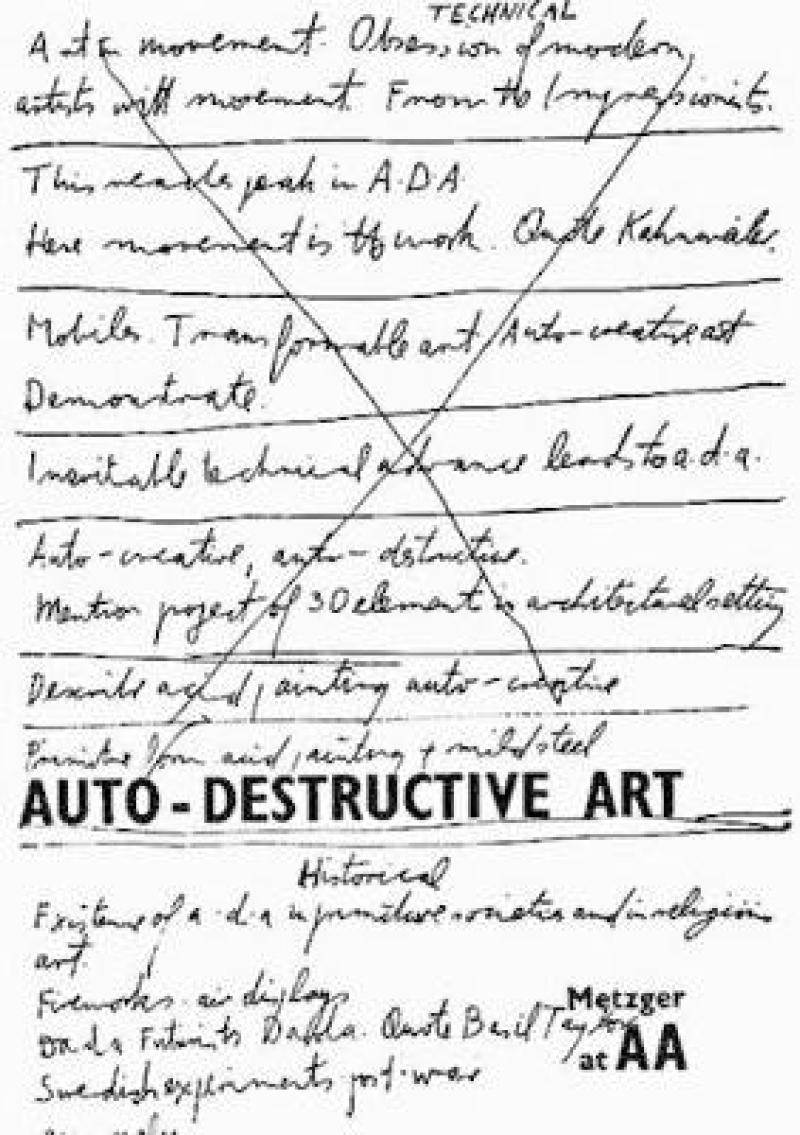 TECHNICAL
movement. Obsession of modern
artists with movement. From the Impressionists.
This reaches peak in A.D.A
Here movement is the work. Quote Kahnweiler.
Mobiles. Transformable art. Auto-creative art
Demonstrate.
Inevitable technical advance leads to a.d.a.
Auto-creative, auto-destructive.
Mention project of 3D element in architectural setting
Describe acid painting auto-creative
acid painting + mild steel
AUTO-DESTRUCTIVE ART
Historical
Existence of a.d.a in primitive societies and in religious
art.
Fireworks. air displays
Dada Futurists Quote Basil Taylor
Swedish experiments post-war
Metzger
at AA